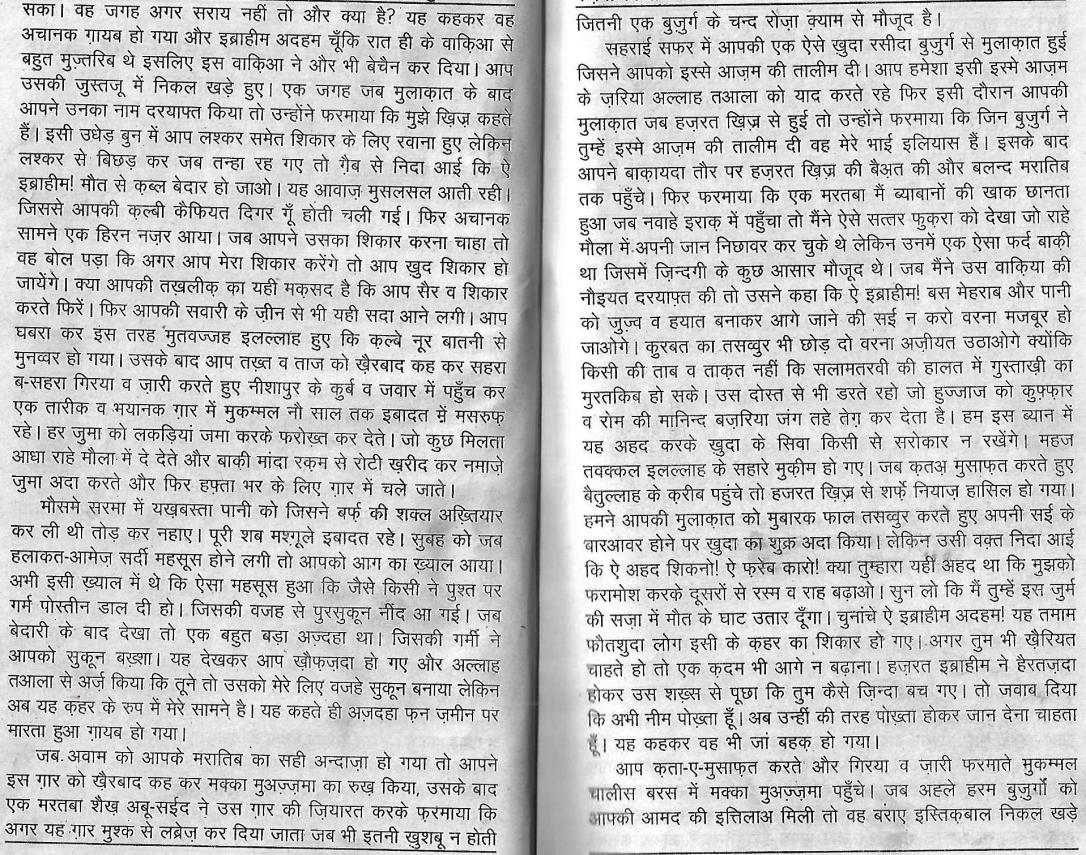 सका। वह जगह अगर सराय नहीं तो और क्या है? यह कहकर वह
अचानक ग़ायब हो गया और इब्राहीम अदहम चूँकि रात ही के वाक़िआ से
बहुत मुज़्तरिब थे इसलिए इस वाक़िआ ने और भी बेचैन कर दिया। आप
उसकी जुस्तजू में निकल खड़े हुए। एक जगह जब मुलाक़ात के बाद
आपने उनका नाम दरयाफ्त किया तो उन्होंने फरमाया कि मुझे ख़िज़्र कहते
हैं। इसी उधेड़ बुन में आप लश्कर समेत शिकार के लिए रवाना हुए लेकिन
लश्कर से बिछड़ कर जब तन्हा रह गए तो ग़ैब से निदा आई कि ऐ
इब्राहीम! मौत से क़ब्ल बेदार हो जाओ। यह आवाज़ मुसलसल आती रही।
जिससे आपकी क़ल्बी कैफियत दिगर गूँ होती चली गई। फिर अचानक
सामने एक हिरन नज़र आया। जब आपने उसका शिकार करना चाहा तो
वह बोल पड़ा कि अगर आप मेरा शिकार करेंगे तो आप ख़ुद शिकार हो
जायेंगे। क्या आपकी तख़लीक़ का यहीं मक़सद है कि आप सैर व शिकार
करते फिरें। फिर आपकी सवारी के ज़ीन से भी यही सदा आने लगी। आप
घबरा कर इंस तरह मुतवज्जह इलल्लाह हुए कि क़ल्बे नूर बातनी से
मुनव्वर हो गया। उसके बाद आप तख़्त व ताज को ख़ैरबाद कह कर सहरा
ब-सहरा गिरया व ज़ारी करते हुए नीशापुर के क़ुर्ब व जवार में पहुँच कर
एक तारीक व भयानक ग़ार में मुकम्मल नौ साल तक इबादत में मसरुफ़
रहे। हर जुमा को लकड़ियां जमा करके फरोख़्त कर देते। जो कुछ मिलता
आधा राहे मौला में दे देते और बाक़ी मांदा रक़म से रोटी ख़रीद कर नमाज़े
जुमा अदा करते और फिर हफ़्ता भर के लिए ग़ार में चले जाते।
मौसमे सरमा में यख़बस्ता पानी को जिसने बर्फ़ की शक्ल अख़्तियार
कर ली थी तोड़ कर नहाए। पूरी शब मश्गूले इबादत रहे। सुबह को जब
हलाकत-आमेज़ सर्दी महसूस होने लगी तो आपको आग का ख़्याल आया।
अभी इसी ख़्याल में थे कि ऐसा महसूस हुआ कि जैसे किसी ने पुश्त पर
गर्म पोस्तीन डाल दी हो। जिसकी वजह से पुरसुकून नींद आ गई। जब
बेदारी के बाद देखा तो एक बहुत बड़ा अज़्दहा था। जिसकी गर्मी ने
आपको सुकून बख़्शा। यह देखकर आप ख़ौफ़ज़दा हो गए और अल्लाह
तआला से अर्ज़ किया कि तूने तो उसको मेरे लिए वजहे सुकून बनाया लेकिन
अब यह क़हर के रुप में मेरे सामने है। यह कहते ही अज़दहा फन ज़मीन पर
मारता हुआ ग़ायब हो गया।
जब. अवाम को आपके मरातिब का सही अन्दाज़ा हो गया तो आपने
इस ग़ार को ख़ैरबाद कह कर मक्का मुअज़्ज़मा का रुख़ किया, उसके बाद
एक मरतबा शैख़ अबू-सईद ने उस ग़ार की ज़ियारत करके फरमाया कि
अगर यह ग़ार मुश्क से लब्रेज़ कर दिया जाता जब भी इतनी ख़ुशबू न होती
जितनी एक बुज़ुर्ग के चन्द रोज़ा क़्याम से मौजूद है।
सहराई सफर में आपकी एक ऐसे ख़ुदा रसीदा बुज़ुर्ग से मुलाक़ात हुई
जिसने आपको इस्से आज़म की तालीम दी। आप हमेशा इसी इस्मे आज़म
के ज़रिया अल्लाह तआला को याद करते रहे फिर इसी दौरान आपकी
मुलाक़ात जब हज़रत ख़िज़्र से हुई तो उन्होंने फरमाया कि जिन बुज़ुर्ग ने
तुम्हें इस्मे आज़म की तालीम दी वह मेरे भाई इलियास हैं। इसके बाद
आपने बाक़ायदा तौर पर हज़रत ख़िज़्र की बैअत की और बलन्द मरातिब
तक पहुँचे। फिर फरमाया कि एक मरतबा मैं ब्याबानों की खाक छानता
हुआ जब नवाहे इराक़ में पहुँचा तो मैंने ऐसे सत्तर फुक़रा को देखा जो राहे
मौला में अपनी जान निछावर कर चुके थे लेकिन उनमें एक ऐसा फर्द बाक़ी
था जिसमें ज़िन्दगी के कुछ आसार मौजूद थे। जब मैंने उस वाक़िया की
नौइयत दरयाफ़्त की तो उसने कहा कि ऐ इब्राहीम! बस मेहराब और पानी
को जुज़्व व हयात बनाकर आगे जाने की सई न करो वरना मजबूर हो
जाओगे। क़ुरबत का तसव्वुर भी छोड़ दो वरना अज़ीयत उठाओगे क्योंकि
किसी की ताब व ताक़त नहीं कि सलामतरवी की हालत में गुस्ताख़ी का
मुरतकिब हो सके। उस दोस्त से भी डरते रहो जो हुज्जाज को कुफ़्फ़ार
व रोम की मानिन्द बज़रिया जंग तहे तेग़ कर देता है। हम इस ब्यान में
यह अहद करके ख़ुदा के सिवा किसी से सरोकार न रखेंगे। महज
तवक्कल इलल्लाह के सहारे मुक़ीम हो गए। जब क़तअ मुसाफ़त करते हुए
बैतुल्लाह के क़रीब पहुंचे तो हजरत ख़िज़्र से शर्फ़े नियाज़ हासिल हो गया।
हमने आपकी मुलाक़ात को मुबारक फाल तसव्वुर करते हुए अपनी सई के
बारआवर होने पर ख़ुदा का शुक्र अदा किया। लेकिन उसी वक़्त निदा आई
कि ऐ अहद शिकनो! ऐ फ़रेब कारो! क्या तुम्हारा यहीं अहद था कि मुझको
फरामोश करके दूसरों से रस्म व राह बढ़ाओ। सुन लो कि मैं तुम्हें इस जुर्म
की सज़ा में मौत के घाट उतार दूँगा। चुनांचे ऐ इब्राहीम अदहम! यह तमाम
फौतशुदा लोग इसी के क़हर का शिकार हो गए। अगर तुम भी ख़ैरियत
चाहते हो तो एक क़दम भी आगे न बढ़ाना। हज़रत इब्राहीम ने हैरतज़दा
होकर उस शख़्स से पूछा कि तुम कैसे ज़िन्दा बच गए। तो जवाब दिया
कि अभी नीम पोख़्ता हूँ। अब उन्हीं की तरह पोख़्ता होकर जान देना चाहता
हूँ। यह कहकर वह भी जां बहक़ हो गया।
आप क़ता-ए-मुसाफ़त करते और गिरया व ज़ारी फरमाते मुकम्मल
चालीस बरस में मक्का मुअज़्ज़मा पहुँचे। जब अह्ले हरम बुज़ुर्गों को
आपकी आमद की इत्तिलाअ मिली तो वह बराए इस्तिक़बाल निकल खड़े